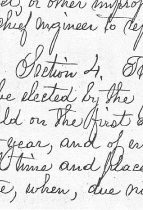 or other improv
chief engineer to re
Section 4. T
be elected by the
ld on the first
year, and of en
time and place
when, due no